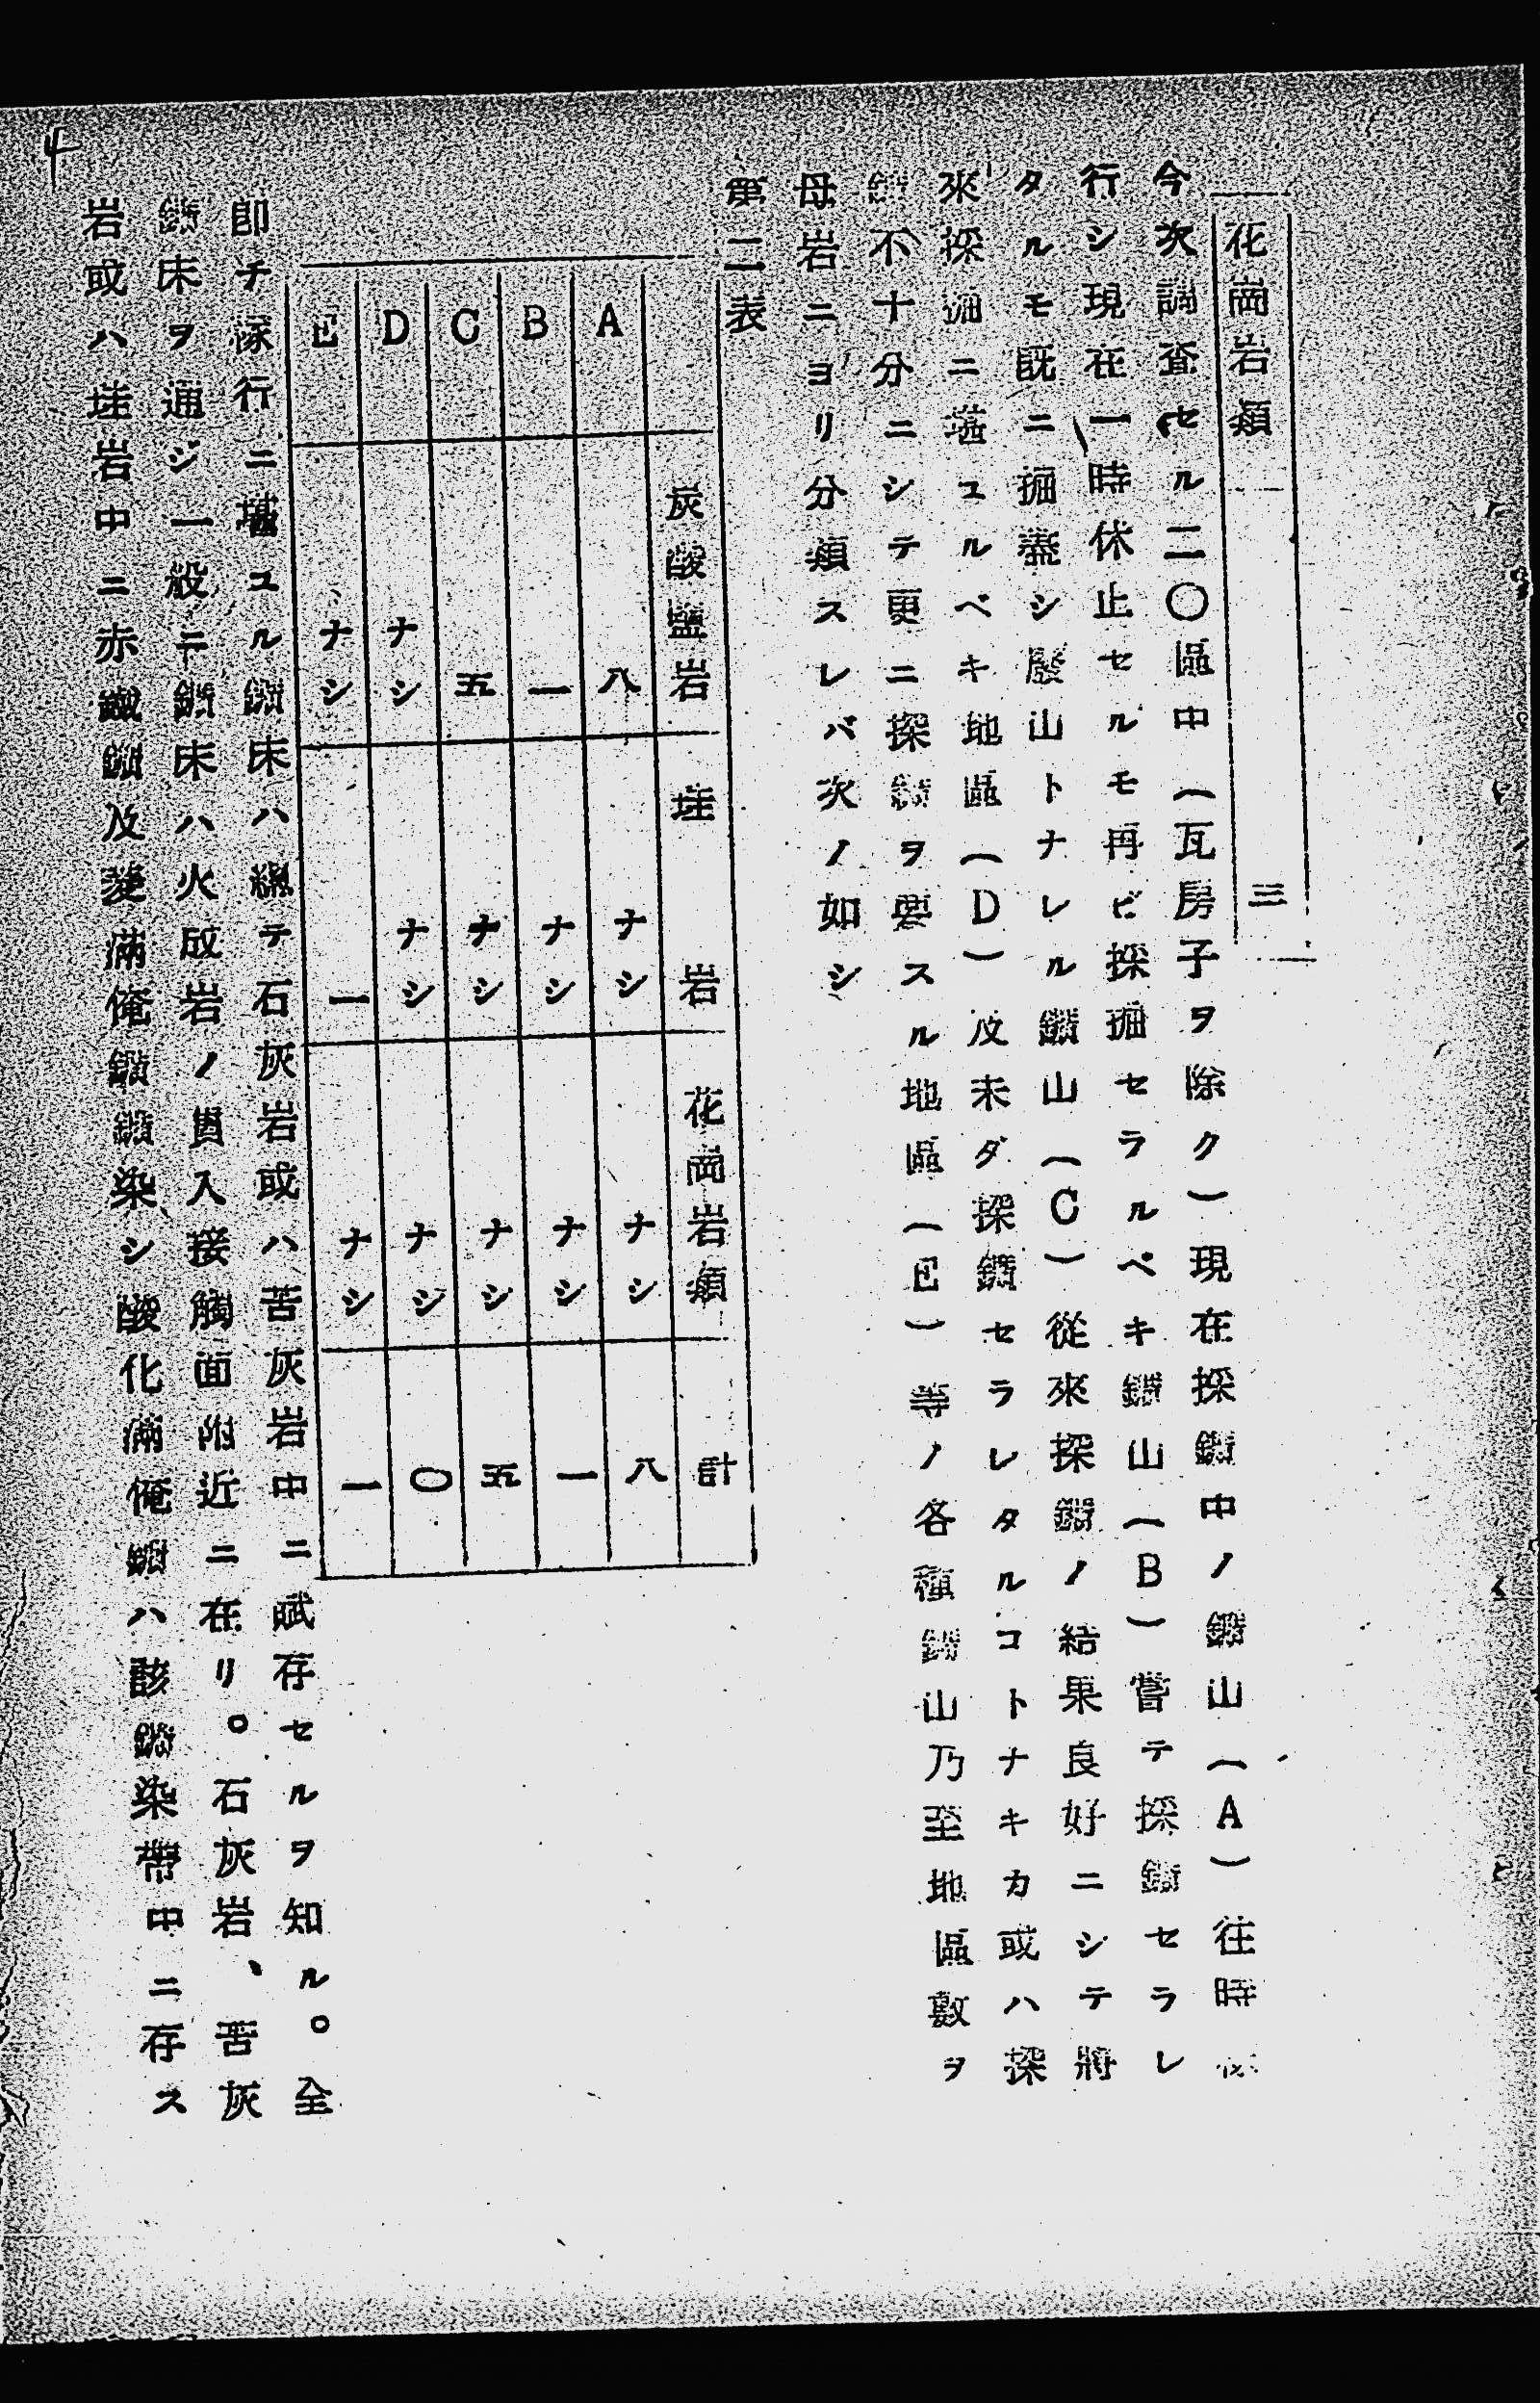 花崗岩類 三
今次調査セル二〇區中(瓦房子ヲ除ク)現在採鑛中ノ鑛山(A)往時
行シ現在一時休止セルモ再ビ採掘セラルベキ鑛山(B)嘗テ採鑛セラレ
タルモ既ニ掘盡シ廢山トナレル鑛山(C)從來探鑛ノ結果良好ニシテ將
來採掘ニ堪ユルベキ地區(D)及未ダ探鑛セラレタルコトナキカ或ハ探
鑛不十分ニシテ更ニ探鑛ヲ要スル地區(E)等ノ各種鑛山乃至地區數ヲ
母岩ニヨリ分類スレバ次ノ如シ
第二表
炭酸鹽岩 珪岩 花崗岩類 計
A 八 ナシ ナシ 八
B 一 ナシ ナシ 一
C 五 ナシ ナシ 五
D ナシ ナシ ナシ 〇
E ナシ 一 ナシ 一
卽チ稼行ニ堪ユル鑛床ハ總テ石灰岩或ハ苦灰岩中ニ賦存セルヲ知ル。全
鑛床ヲ通ジ一般ニ鑛床ハ火成岩ノ貫入接觸面附近ニ在リ。石灰岩、苦灰
岩或ハ珪岩中ニ赤鐵鑛及菱滿俺鑛鑛染シ酸化滿俺鑛ハ該鑛染帶中ニ存ス
4